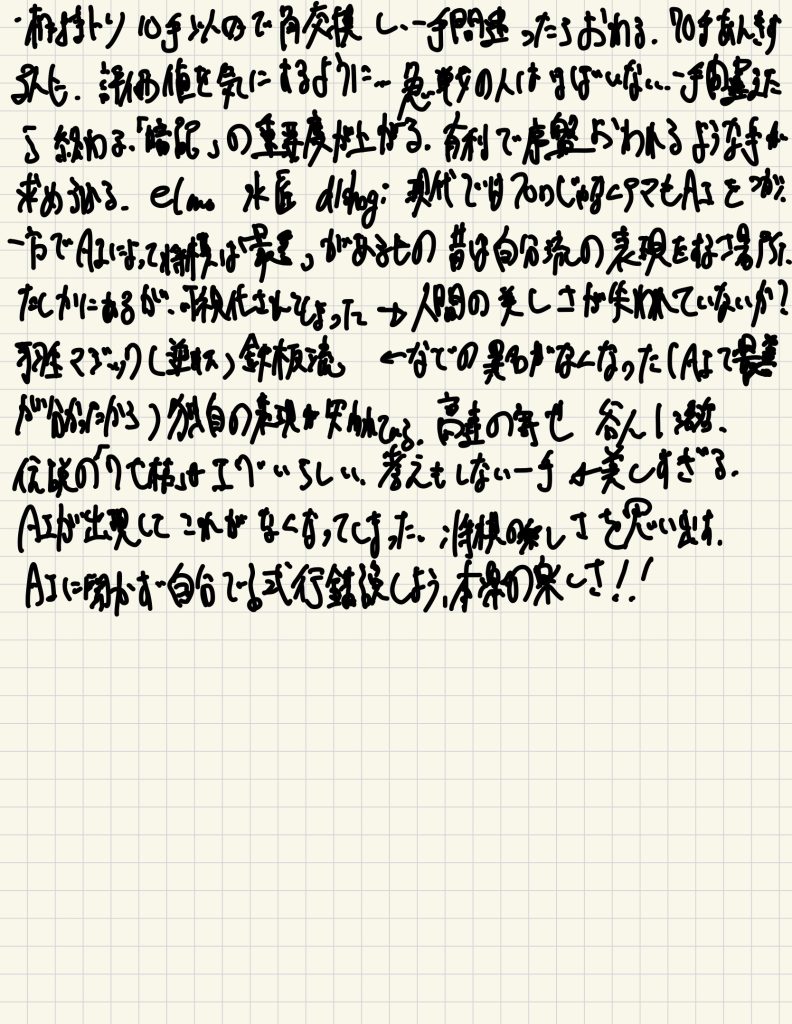 ・相掛トリ 10手以内で角交換し、一手間違ったらおわる。70手あんき
した。評価値を気にするように… 急戦の人はいない、一手間違えた
ら終わる。「暗記」の重要度が上がる。有利で序盤おわれるような手が
求められる。elmo 水匠 dlshogi 現代ではプロじゃなくアマもAIをつかう
一方でAIによって将棋は「最善」があるもの 昔は自分流の表現をなす場所。
たしかにあるが、可視化されてしまった → 人間の美しさが失われていないか?
羽生マジック() 鉄板流 ←などの異名がなくなった(AIで最善
が分かったから)独自の表現が失われている。高速の寄せ 谷川浩二
伝説の「5七桂」 考えもしない一手 ←美しすぎる。
AIが出現してこれがなくなってしまった。将棋の楽しさを思います。
AIに聞かず自分で試行錯誤しよう、本来の楽しさ!!